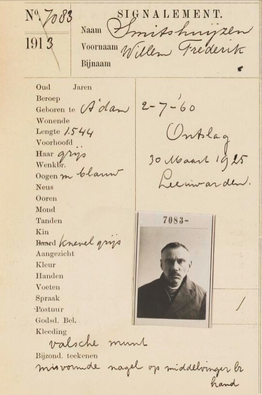 No. 7083
SIGNALEMENT.
1913
Naam Smitshuijzen
Voornaam Willem Frederik
Bijnaam
Oud Jaren
Beroep
Geboren te A'dam 2-7-'60
Wonende
Lengte 1544
Ontslag
Voorhoofd
Haar grijs
30 Maart 1925
Wenkbr.
Oogen m blauw
Leeuwarden.
Neus
Ooren
Mond
Tanden
Kin
Baard knevel grijs
7083-
Aangezicht
Kleur
Handen
Voeten
Spraak
Postuur
1
Godsd. Bel.
Kleeding
valsche munt
Bijzond. teekenen
misvormde nagel op middelvinger
hand